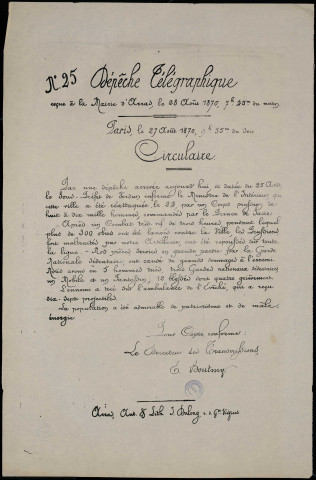 N° 25 Dépêche Télégraphique
reçue à la Mairie d'Arras, le 28 Août 1870, 7h 25m du matin
Paris, le 27 Août 1870, 9h 55m du soir
Circulaire.
Par une dépêche arrivée aujourd'hui et datée du 25 Août,
le Sous-Préfet de Verdun informe le Ministre de l'Intérieur que
cette ville a été attaquée le 24, par un Corps d'armée de
huit à dix mille hommes commandés par le Prince de Saxe.
Après un Combat très vif de trois heures, pendant lequel
plus de 300 obus ont été lancés contre la Ville, les Prussiens
fort maltraités par notre Artillerie ont été repoussés sur toute
la ligne. Nos pièces servies en grande partie par la Garde
Nationale sédentaire, ont causé de grands dommages à l'ennemi.
Nous avons eu 5 hommes tués, trois Gardes nationaux sédentaires,
un Mobile et un Fantassin; 12 blessés dont quatre grièvement.
L'ennemi a tiré sur l'ambulance de l'Evêché qui a reçu
dix-sept projectiles.
La population a été admirable de patriotisme et de mâle
énergie
Pour Copie conforme:
Le Directeur des Transmissions
E. Boulmy
Arras, Aut. & Lith. J. Delory r. s. Gte Vigne